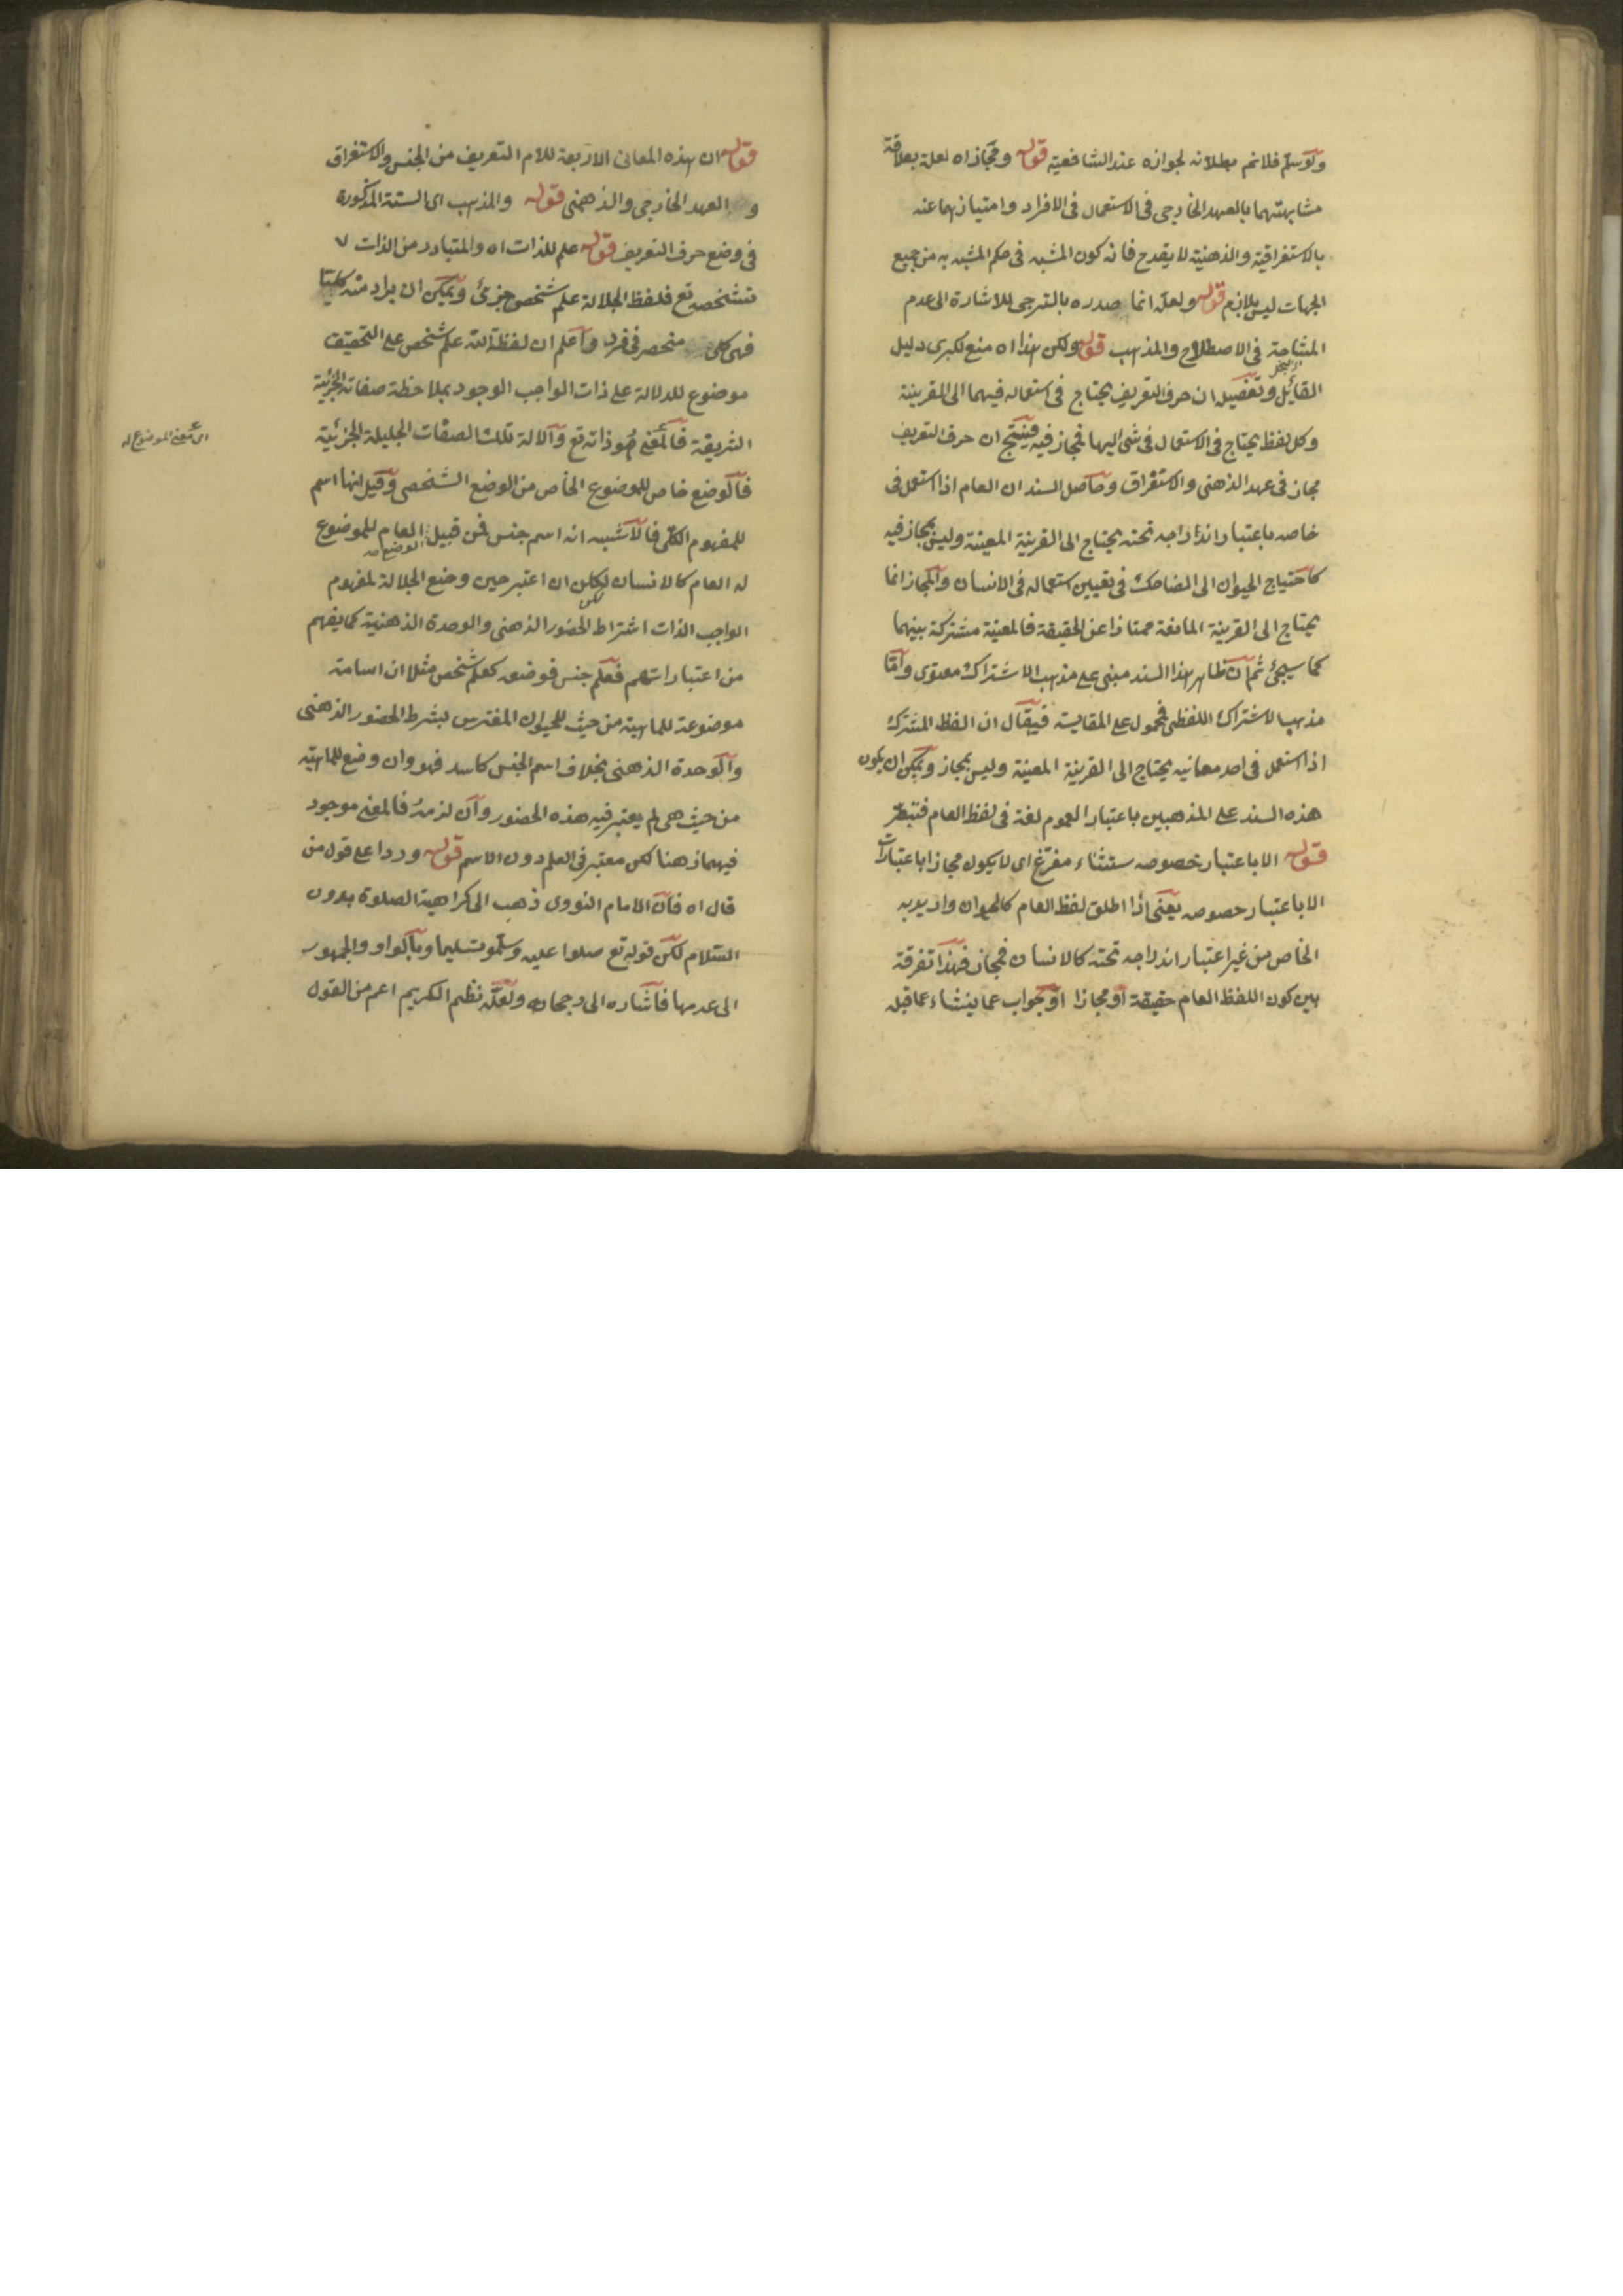 ولو سلم فلانم بطلانه لجوازه عند الشافعية قوله ومجاز اه لعله بعلاقة
مشابهتهما بالعهد الخارجى فى الاستعمال فى الافراد وامتيازهما عنه
بالاستغراقية والذهنية لا يقدح فانه كون المشبه فى حكم المشبه به من جميع
الجهات ليس بلازم قوله ولعله انما صدره بالترجى للاشارة الى عدم
المشاحة فى الاصطلاح والمذهب قوله ولكن هذا اه منع لكبرى دليل
القائل وتفصيله ان حرف التعريف يحتاج فى استعماله فيهما الى القرينة
وكل لفظ يحتاج فى الاستعمال فى شئ اليها فمجاز فيه فينتج ان حرف التعريف
مجاز فى عهد الذهنى والاستغراق وحاصل السند ان العام اذا استعمل فى
خاصه باعتبار اندراجه تحته يحتاج الى القرينة المعينة وليس بمجاز فيه
كاحتياج الحيوان الى الضاحك فى تعيين استعماله فى الانسان والمجاز انما
يحتاج الى القرينة المانعة ممتازا عن الحقيقة فالمعينة مشتركة بينهما
كما سيجئ ثم ان ظاهر هذا السند مبنى على مذهب الاشتراك معنوى واما
مذهب الاشتراك اللفظى فمحمول على المقايسة فيقال ان الفظ المشترك
اذا استعمل فى احد معانيه يحتاج الى القرينة المعينة وليس بمجاز ويمكن ان يكون
هذه السند على المذهبين باعتبار العموم لغة فى لفظ العام فتبصر
قوله الا باعتبار خصوصه ستثناء مفرغ اى لا يكون مجازا باعتبارات
الا باعتبار خصوصه يعنى اذا اطلق لفظ العام كالحيوان واريد به
الخاص من غير اعتبار اندراجه تحته كالانسان فمجاز فهذا تفرقة
بين كون اللفظ العام حقيقة او مجازا او جواب عما ينشاء عما قبله
قوله ان هذه المعانى الاربعة للام التعريف من الجنس والاستغراق
و العهد الخارجى والذهنى قوله والمذهب اى الستة المذكورة
فى وضع حرف التعريف قوله علم للذات اه والمتبادر من الذات
تشخصه تع فلفظ الجلالة علم شخص جزئى ويمكن ان يراد منه كليتا
فهى كلى منحصر فى فرد واعلم ان لفظة الله علم شخص على التحقيق
موضوع للدلالة على ذات الواجب الوجود بملاحظة صفاته الجزئية
الشريفة فالمعنى هو ذاته تع والالة تلك الصفات الجليلة الجزئية
اى معنى الموضوع له
فالوضع خاص للموضوع الخاص من الوضع الشخصى وقيل انها اسم
للمفهوم الكلى فالاشبه انه اسم جنس فمن قبيل العام للموضوع
له العام كالانسان لكن ان اعتبر حين وضع الجلالة لمفهوم
الواجب الذات اشتراط الحضور الذهنى والوحدة الذهنية كما يفهم
من اعتباراتهم فعلم جنس فوضعه كعلم شخص مثلا ان اسامة
موضوعة للماهية من حيث للحيوان المفترس بشرط الحضور الذهنى
والوحدة الذهنى بخلاف اسم الجنس كاسد فهو وان وضع للماهية
من حيث هى لم يعتبر فيه هذه الحضور وان لزمه فالمعنى موجود
فيهما ذهنا لكن معتبر فى العلم دون الاسم قوله وردا على قول من
قال اه فان الامام النووى ذهب الى كراهية الصلوة بدون
السلام لكن قوله تع صلوا عليه وسلمو تسليما وبالواو والجمهور
الى عدمها فاشاره الى رجحانه ولعله نظم الكريم اعم من القول